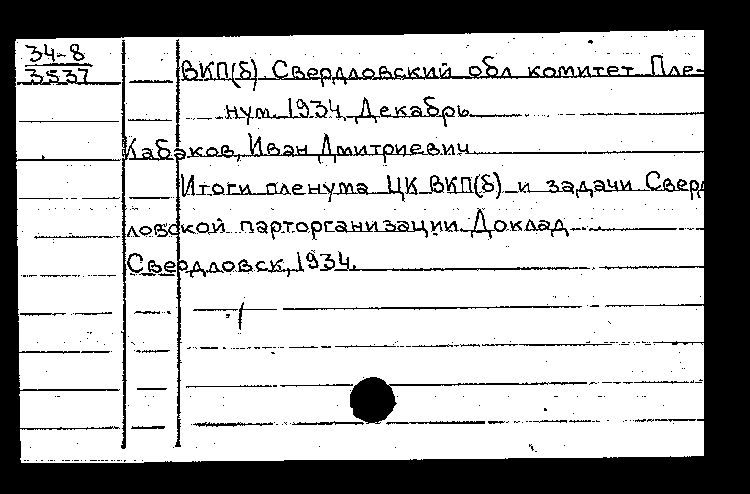 34-8
3537
ВКП(б) Свердловский обл комитет Пле-
нум. 1934, Декабрь
Кабаков, Иван Дмитриевич
Итоги пленума ЦК ВКП(б) и задачи Сверд
ловской парторганизации. Доклад
Свердловск, 1934.